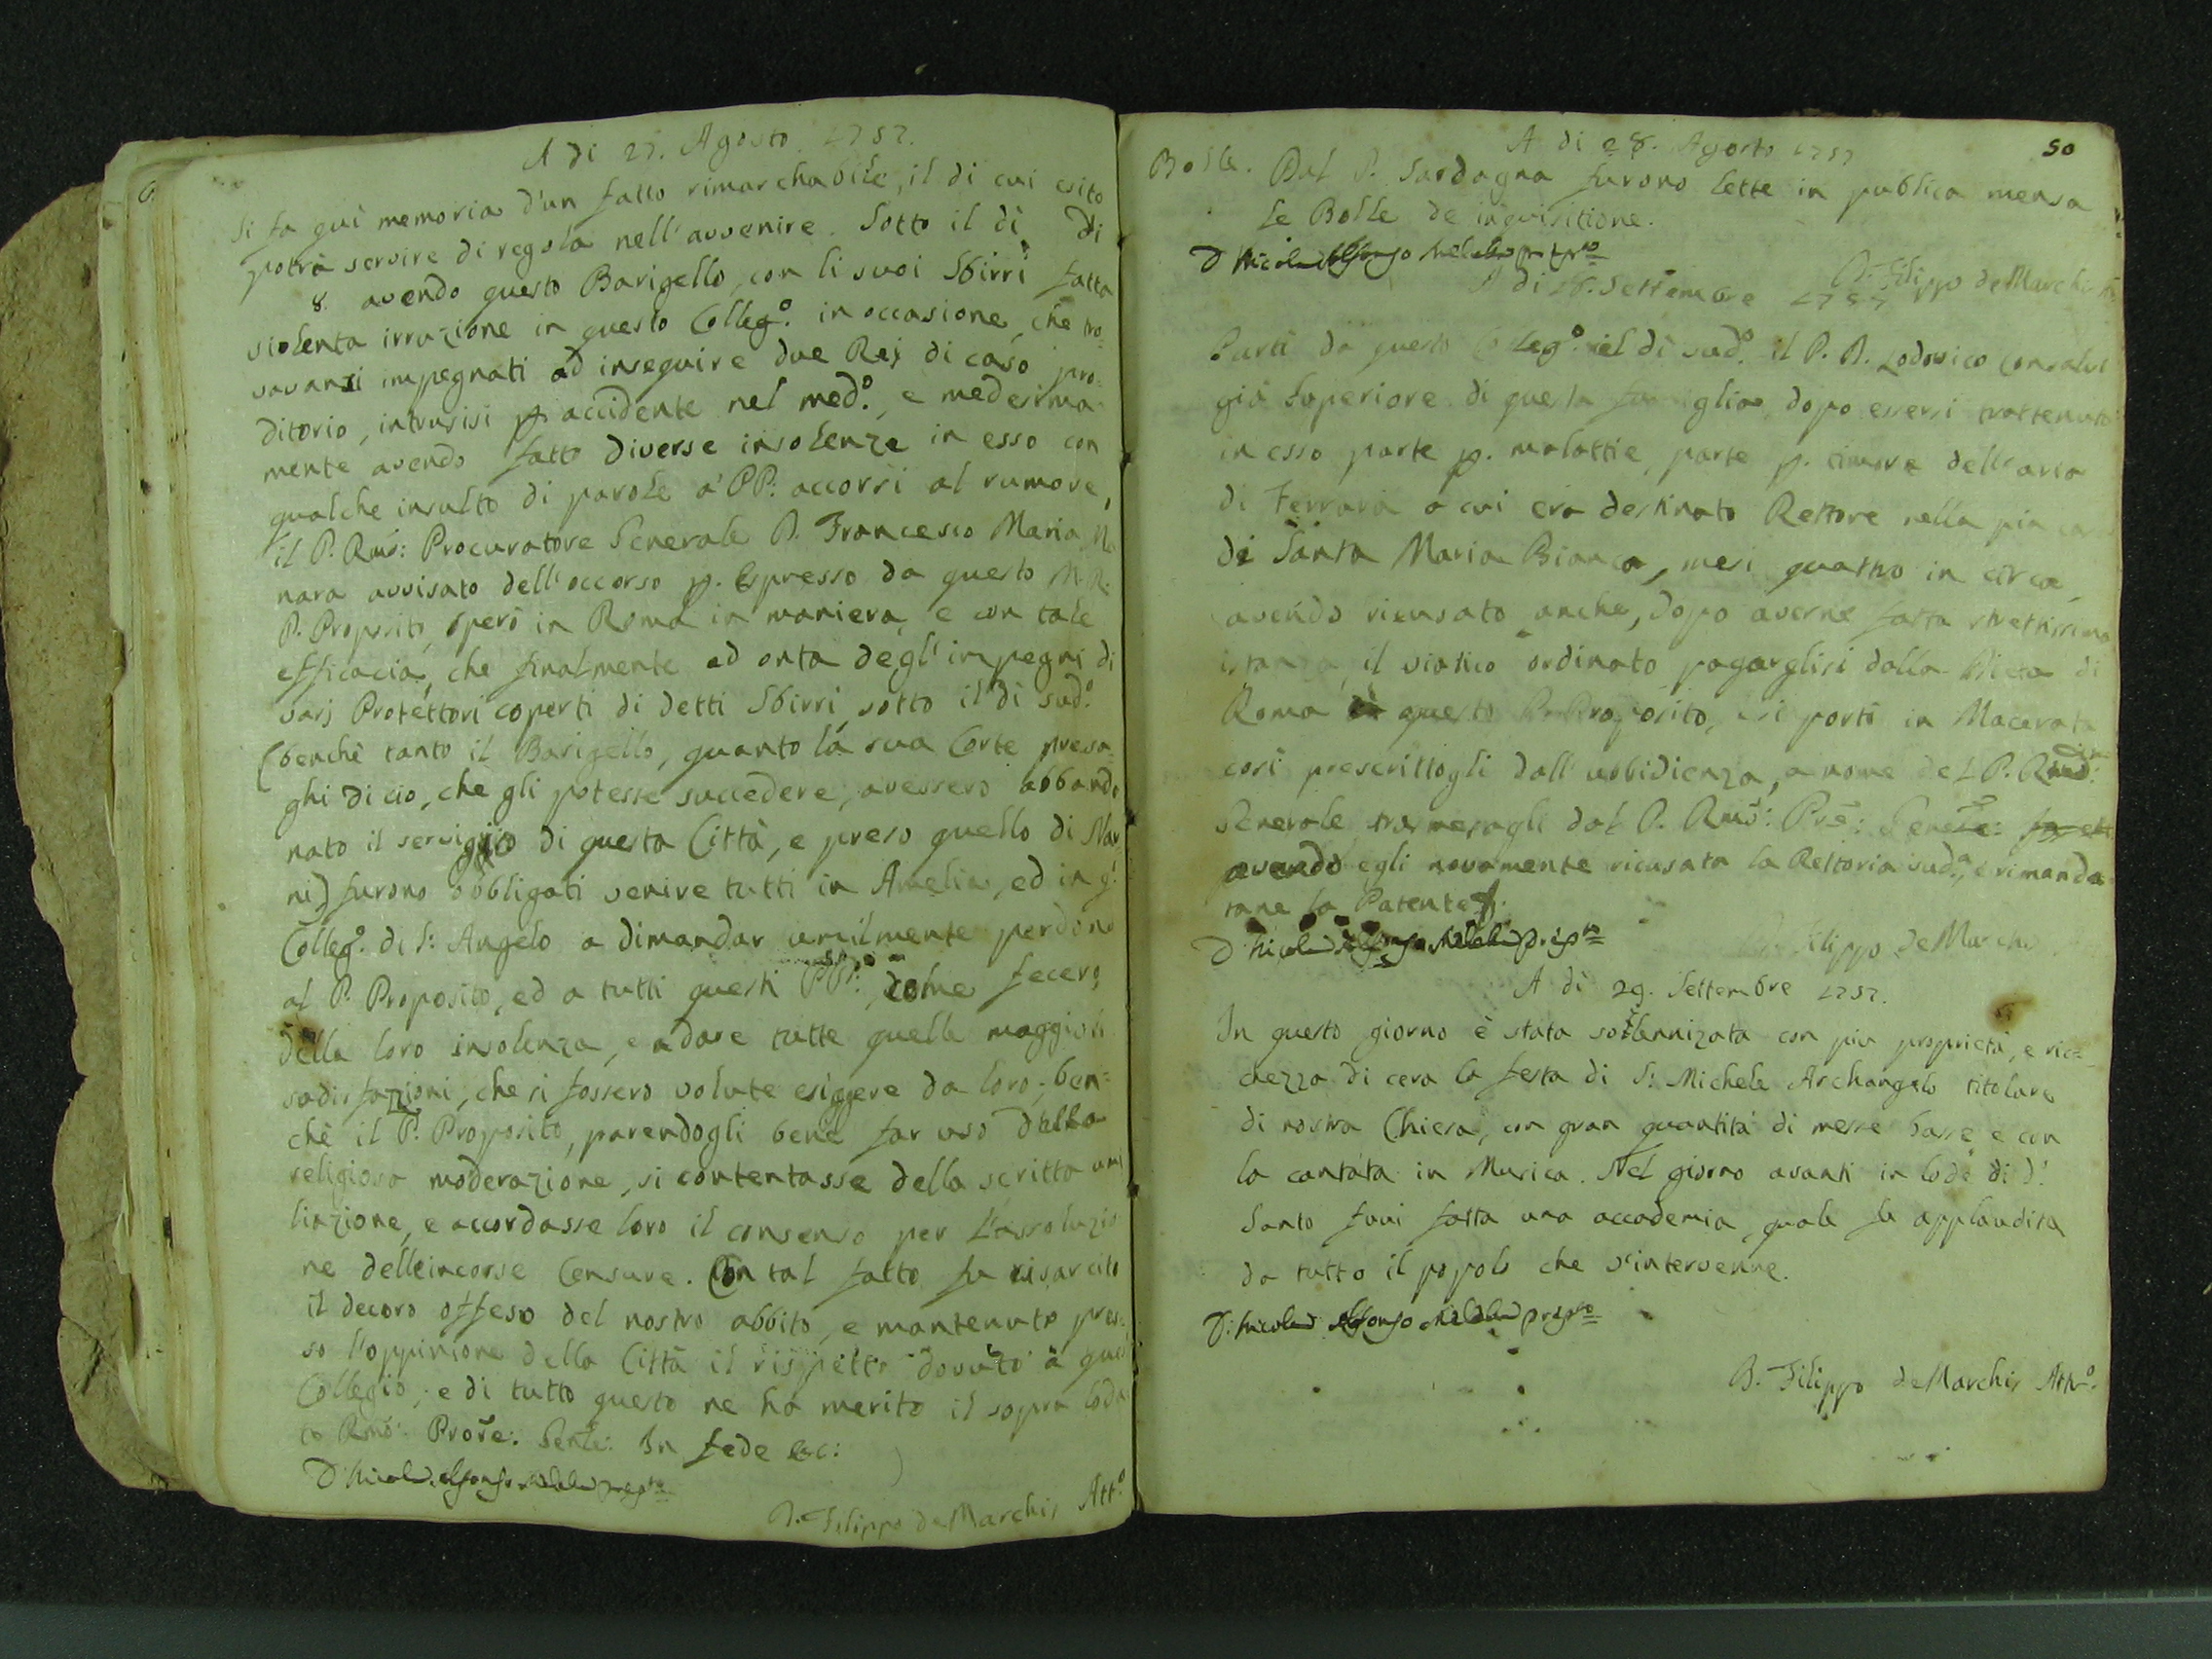 A di 27. Agosto 1757.
Si fa qui memoria d'un fatto rimarchabile, il di cui esito
potrà servire di regola nell'avvenire. Sotto il dì di
8. avendo questo Barigello, con li suoi Sbirri fatta
violenta irruzione in questo Colleg.º in occasione, che tro=
vavansi impegnati ad inseguire due Rei di caso pro=
ditorio, intrusisi p. accidente nel med.º, e medesima
mente avendo fatto diverse insolenze in esso con
qualche insulto di parole a' PP. accorsi al rumore,
il P. Rmo: Procuratore Generale D. Francesco Maria
nara avvisato dell'occorso p. Espresso da questo M. R.
P. Proposito, operò in Roma in maniera, e con tale
efficacia, che finalmente ad onta degl'impegni di
varj Protettori coperti di detti Sbirri, sotto il dì sud.º
(benchè tanto il Barigello, quanto la sua Corte presa=
ghi di ciò, che gli potesse succedere, avessero abbando
nato il servigio di questa Città, e preso quello di Nar
ni) furono obbligati venire tutti in Amelia, ed in q.
Colleg.º di S. Angelo a dimandar umilmente perdono
al P. Proposito, ed a tutti questi PP: come fecero,
della loro insolenza, e a dare tutte quelle maggiori
sadisfazzioni, che si fossero volute esiggere da loro; ben=
chè il P. Proposito, parendogli bene far uso della
religiosa moderazione, si contentasse della scritta umi
liazione, e accordasse loro il consenso per l'assoluzio
ne delle incorse Censure. Con tal fatto fu risarcito
il decoro offeso del nostro abbito, e mantenuto pres=
so l'oppinione della Città il rispetto dovuto a que
Collegio; e di tutto questo ne ha merito il sopra loda
to Rmo: Prore: Genle: In fede &c:
D. Nicola Alfonso prepto
D. Filippo de Marchis Att.º
50
A di 28. Agosto 1757
Bolle. Dal P. Sardagna furono lette in publica mensa
le Bolle de inquisitione.
D Nicola Alfonso prepto
D. Filippo de Marchis
A di 16. Settembre 1757
Partì da questo Colleg.º il dì sud.º il P. D. Lodovico
già Superiore di questa famiglia, dopo essersi trattenuto
in esso parte p. malattie, parte p. timore dell'aria
di Ferrara a cui era destinato Rettore nella pia
di Santa Maria Bianca, mesi quattro in circa,
avendo ricusato anche, dopo averne fatta strettissima
istanza, il viatico ordinato pagarglisi dalla Dieta di
Roma questo P. Proposito, e si portò in Macerata
così prescrittogli dall'ubbidienza, a nome del P. R
Generale trasmessagli dal P. Rmo: Pre: Genele:
avendo egli novamente ricusata la Rettoria sud.ª, e rimanda
tane la Patente.
D. Nicola Alfonso prepto
Filippo de Marchis
A di 29. Settembre 1757.
In questo giorno è stata solennizata con più proprietà, e ric=
chezza di cera la festa di S. Michele Archangelo titolare
di nostra Chiesa, con gran quantità di messe basse e con
la cantata in Musica. Nel giorno avanti in lode di d.
Santo fuvi fatta una accademia, quale fu applaudita
da tutto il popolo che v'intervenne.
D. Nicola Alfonso prepto
D. Filippo de Marchis Att.º